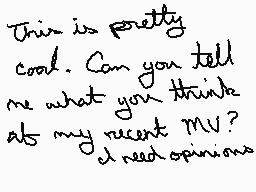 This is pretty
cool. Can you tell
me what you think
of my recent MV?
I need opinions